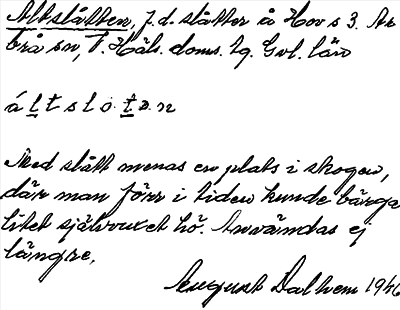 Altslåtten, f.d. slåtter å Hov s 3. Ar
brå sn, V. Häls. doms. hg. Gvl. län
á l t s l o t ə n
Med slått menas en plats i skogen,
där man förr i tiden kunde bärga
litet självvuxet hö. Användas ej
längre.
August Dalhem 1946